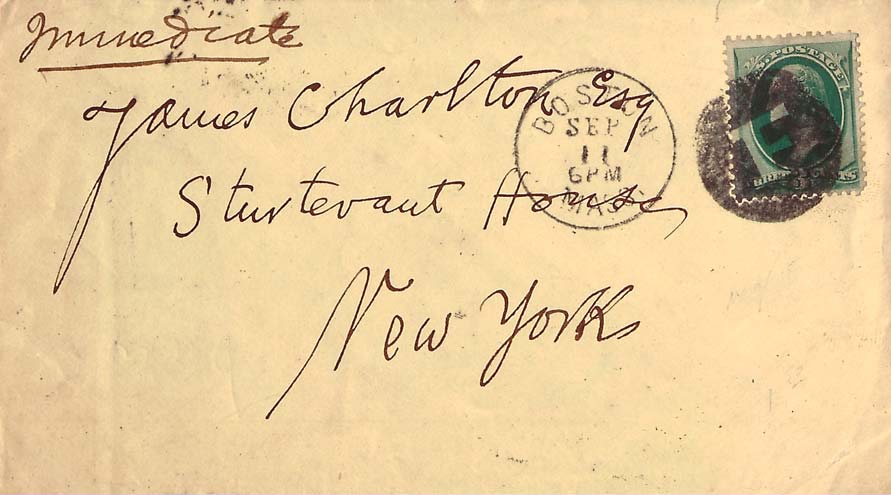 Immediate
James Charlton Esq
Sturtevant House
New York
BOSTON
SEP
11
6PM
MASS
U.S. POSTAGE
THREE CENTS